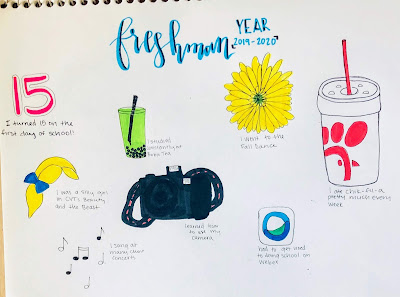 freshman
YEAR
2019-2020
15
I turned 15 on the
first day of school!
I went to the
Fall Dance
I ate Chik-fil-a
pretty much every
week
I was a silly girl
and the Beast
I learned how
to use my
camera
I sang at
many choir
concerts
had to get used
to doing school on
Webex